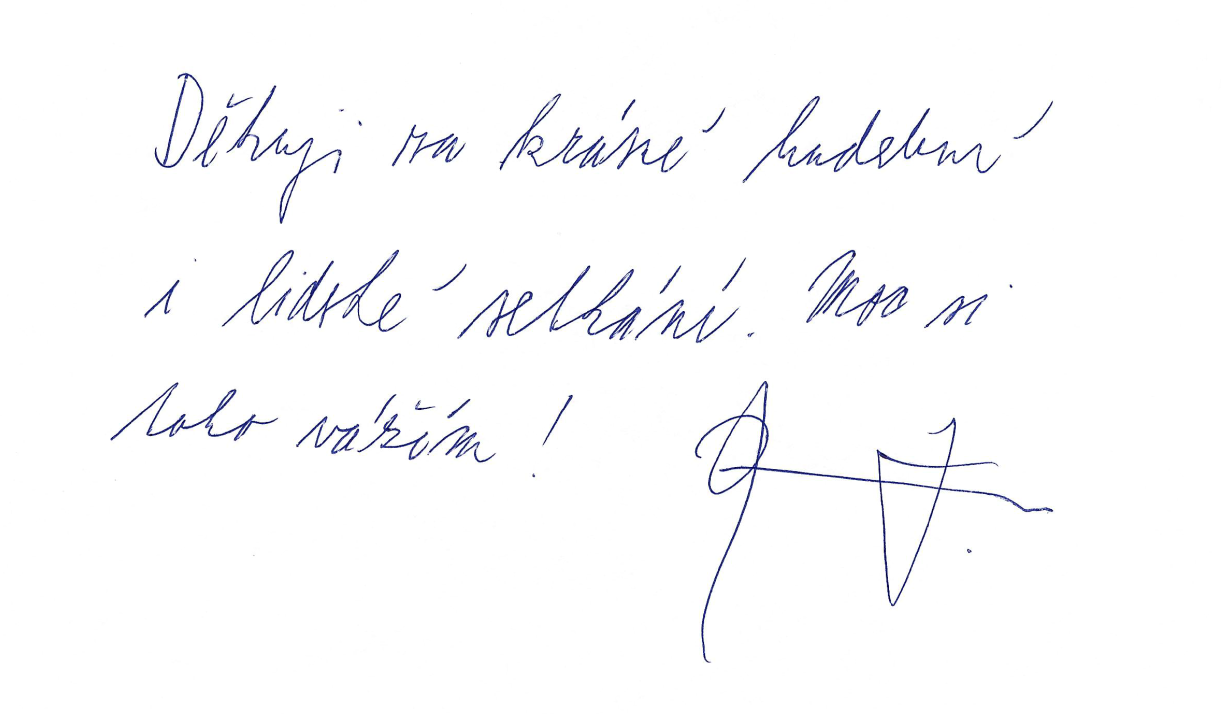 Děkuji za krásné hudební
i lidské setkání. Moc si
toho vážím!